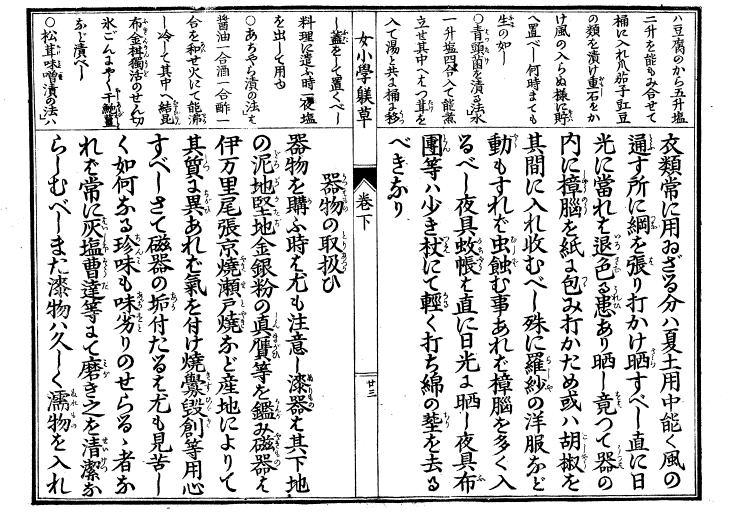 ハ豆腐のから五升塩
二升を能もみ合せて
桶に入れ爪茄子豇豆
の類を漬け重石をか
け風の入らぬ様に貯
へ置べし何時までも
生の如し
○青頭菌を漬るは水
一升塩四合入て能煮
立せ其中へはつ茸を
入て湯と共に桶に移
衣類常に用ゐざる分ハ夏土用中能く風の
通す所に綱を張り打かけ晒すべし直に日
光に當れば退色る患あり晒し竟つて器の
内に樟脳を紙に包み打かため或ハ胡椒を
其間に入れ收むべし殊に羅紗の洋服など
動もすれば虫蝕む事あれば樟脳を多く入
るべし夜具蚊帳は直に日光に晒し夜具布
團等ハ少き杖にて輕く打ち綿の塵を去る
べきなり
女小學躾草
巻下
廿三
し蓋をして置くべし
料理に遣ふ時一夜塩
を出して用ゆ
○あちやら漬の法は
醤油一合酒一合酢一
合を和せ火にて能沸
し冷して其中へ結昆
布金柑獨活のせん切
氷ごんにやく干鮑薑
など漬べし
○松茸味噌漬の法ハ
器物の取扱ひ
器物を購ふ時は尤も注意し漆器は其下地
の泥地堅地金銀粉の真贋等を鑑み磁器は
伊万里尾張京燒瀬戸燒など産地によりて
其質に異あれば氣を付け燒釁毀創等用心
すべしさて磁器の垢付たるは尤も見苦し
く如何なる珍味も味劣りのせらるゝ者な
れば常に灰塩曹達等にて磨き之を清潔な
らしむべしまた漆物ハ久しく濡物を入れ